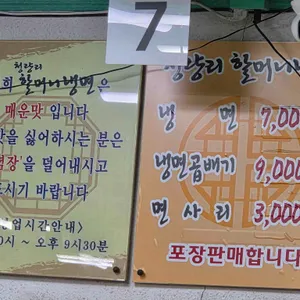 7
청량리
희 할머니냉면은
매운맛입니다
맛을 싫어하시는 분은
을 덜어내시고
시기 바랍니다
업시간안내>
0시 ~ 오후 9시30분
청량리 할머니
냉 면 7,00
냉면곱배기 9,000
면 사 리 3,000
포장판매합니다